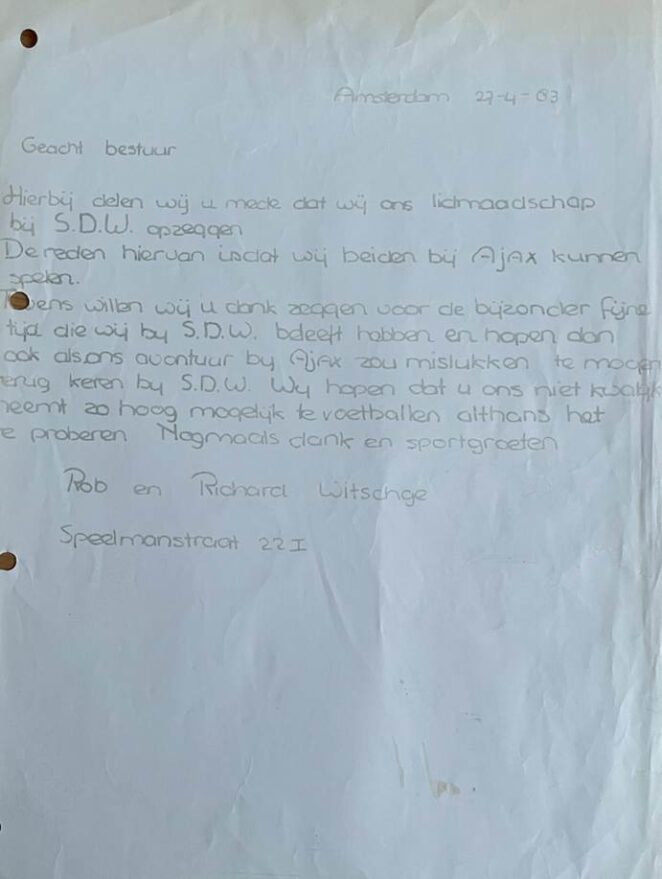 Amsterdam 27-4-83
Geacht bestuur
Hierbij delen wij u mede dat wij ons lidmaadschap
bij S.D.W. opzeggen
De reden hiervan is dat wij beiden bij Ajax kunnen
spelen.
willen wij u dank zeggen voor de bijzonder fijne
tijd die wij by S.D.W. beleeft hobben en hopen dan
ook als ons avontuur by Ajax zou mislukken te mogen
terug keren by S.D.W. Wy hopen dat u ons niet kwalijk
neemt zo hoog mogelijk te voetballen althans het
te proberen Nogmaals dank en sportgroeten
Rob en Richard Witschge
Speelmanstraat 22 I